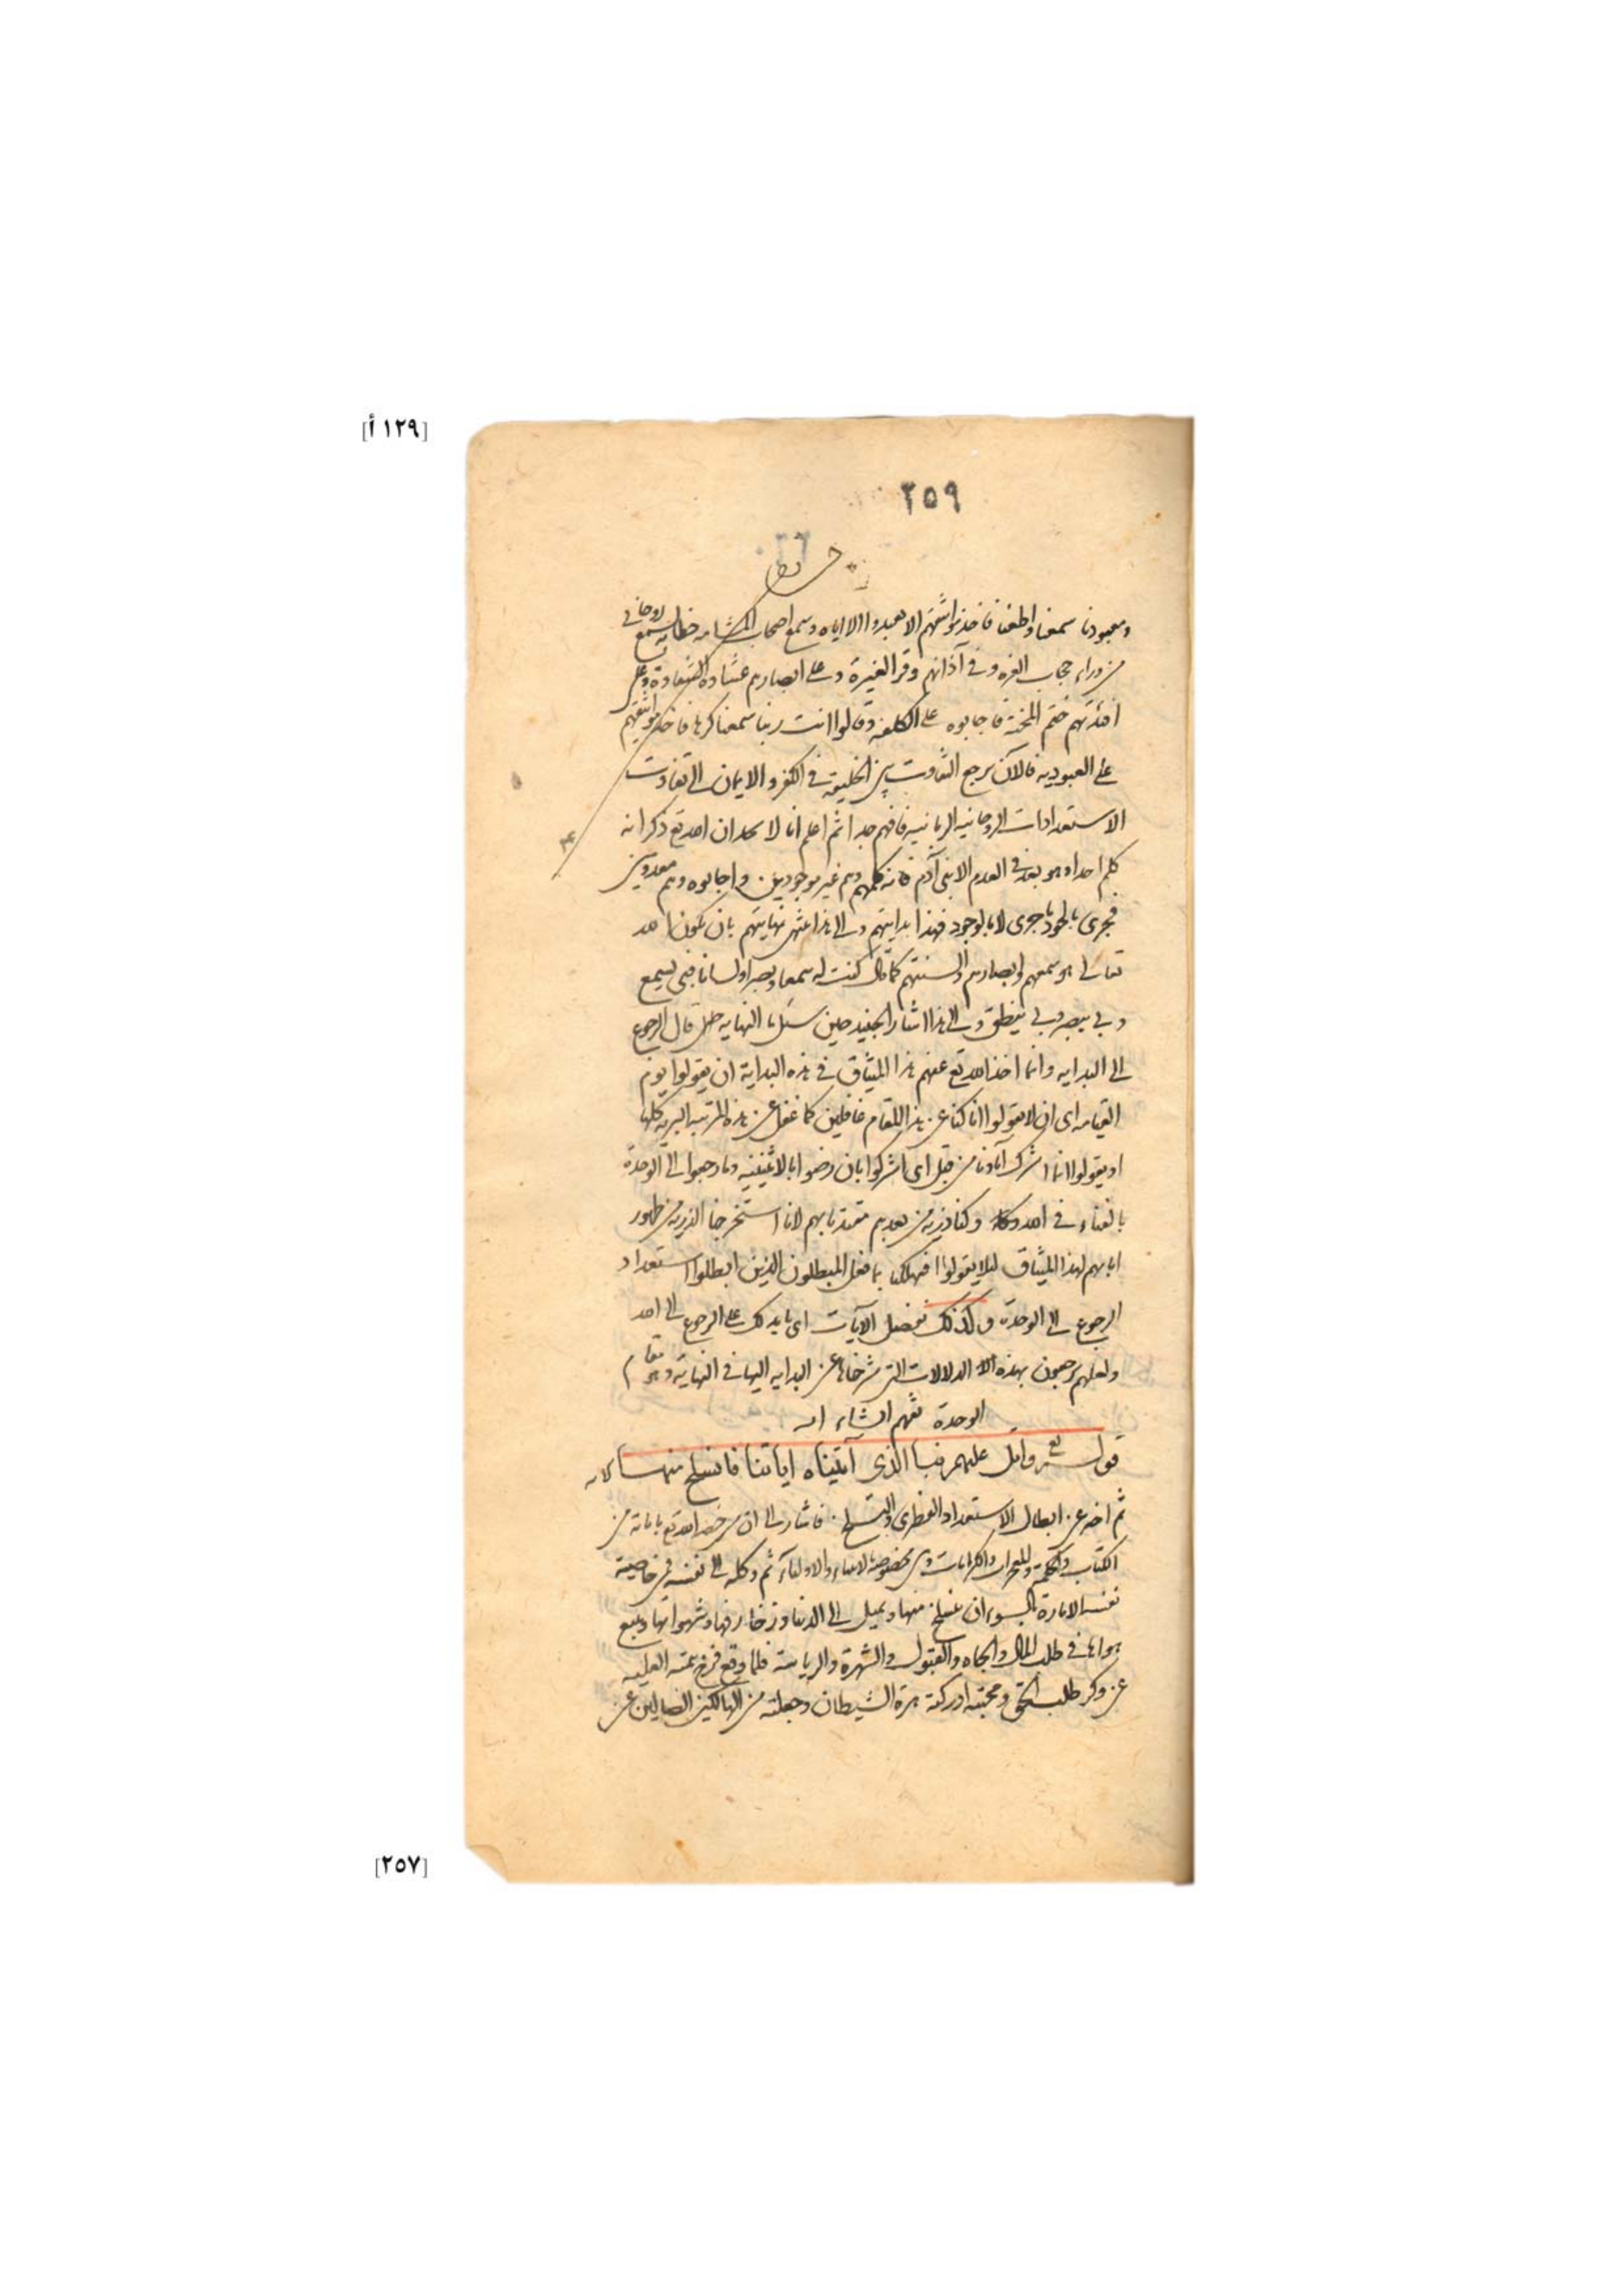 [١٢٩ أ]
٢٥٩
ومعبودنا سمعنا واطعنا فاخذ مواثيقهم الا يعبدوا الا اياه وسمع اصحاب المشامه خطابه بسمع روحاني
من وراء حجاب العزه وفي آذانهم وقر الغيرة وعلى ابصارهم غشاوة الشقاوة وعلى
افئدتهم ختم المحنة فاجابوه على الكلفه وقالوا انت ربنا سمعنا كرها فاخذ مواثيقهم
على العبودية فالآن يرجع التفاوت بين الخليقة في الكفر والايمان الى تفاوت
الاستعدادات الروحانيه الربانيه فافهم جدا ثم اعلم انا لا نجد ان الله تع ذكر انه
كلم احدا وهو بعد في العدم الا بني آدم فانه كلمهم وهم غير موجودين واجابوه وهم معدومين
فجرى بالجود ما جرى لا بالوجود فهذا بدايتهم والى هذا تنتهى نهايتهم بان يكون الله
تعالى هو سمعهم وابصارهم والسنتهم كما قال كنت له سمعا وبصرا ولسانا فبي يسمع
وبي يبصر وبي ينطق والى هذا اشار الجنيد حين سئل ما النهايه قال الرجوع
الى البدايه وانما اخذ الله تع عنهم هذا الميثاق في هذه البداية ان يقولوا يوم
القيامه اى ان لا يقولوا انا كنا عن هذا المقام غافلين كما غفل عن هذه المرتبه البريه كلها
او يقولوا انما اشرك آباؤنا من قبل اى اشركوا بان رضوا بالاثنينيه وما رجعوا الى الوحدة
بالفناء في الله وكنا ذرية من بعدهم مقتدنا بهم لانا استخرجنا الذريه من ظهور
ابايهم لهذا الميثاق ليلا يقولوا افتهلكنا بما فعل المبطلون الذين ابطلوا استعداد
الرجوع الى الوحدة وكذلك نفصل الآيات اى بذلك على الرجوع الى الله
ولعلهم يرجعون بهذه الدلالات التى شرحناها عن البدايه اليها في النهاية وهو مقام
الوحدة تفهم انشاء الله
قوله تع واتل عليهم نبا الذى آتيناه اياتنا فانسلخ منها الايه
ثم اخبر عن ابطال الاستعداد الفطرى فاشار الى ان من خصه الله تع باياته من
الكتاب والحكمة والمعجزات والكرامات وهى مخصوصة بالانبياء والاولياء ثم وكله الى نفسه فمن خاصية
نفسه الامارة بالسوء ان ينسلخ منها ويميل الى الدنيا وزخارفها وشهواتها ويتبع
هواها في طلب المال والجاه والقبول والشهرة والرياسة فلما وقع فرخ همته العليه
عن وكر طلب الحق ومحبته ادركته هرة الشيطان وجعلته من الهالكين الضالين عن
[٢٥٧]